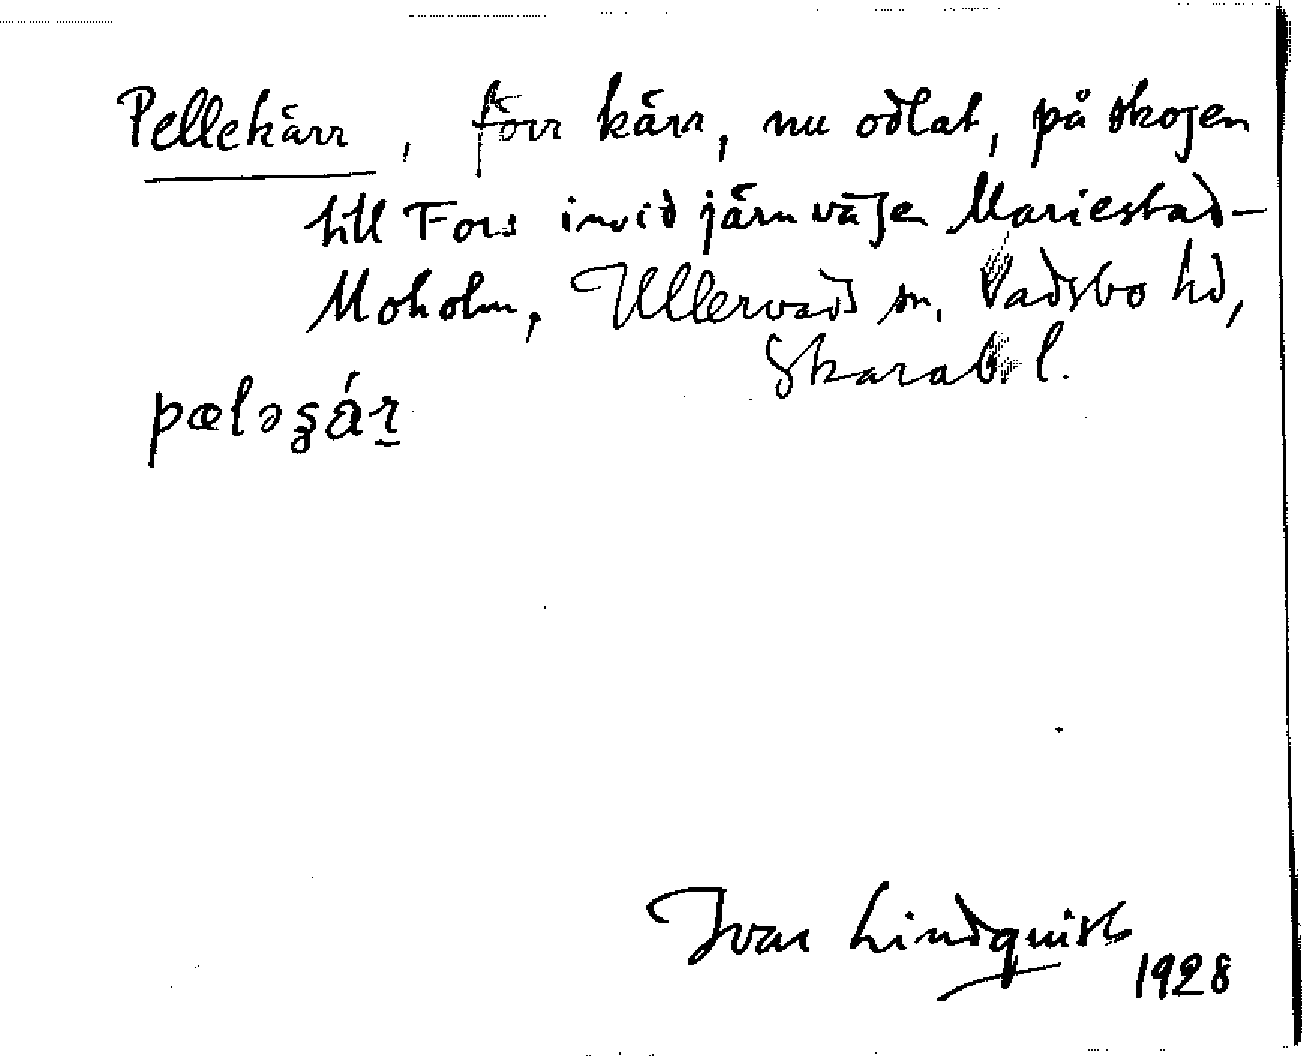 Pellekärr, förr kärr, nu odlat, på skogen
till Fors invid järnvägen Mariestad-
Moholm, Ullervads sn, Vadsbo hd,
Skarab. l.
pæləʒáꞧ
Ivar Lindquist
1928